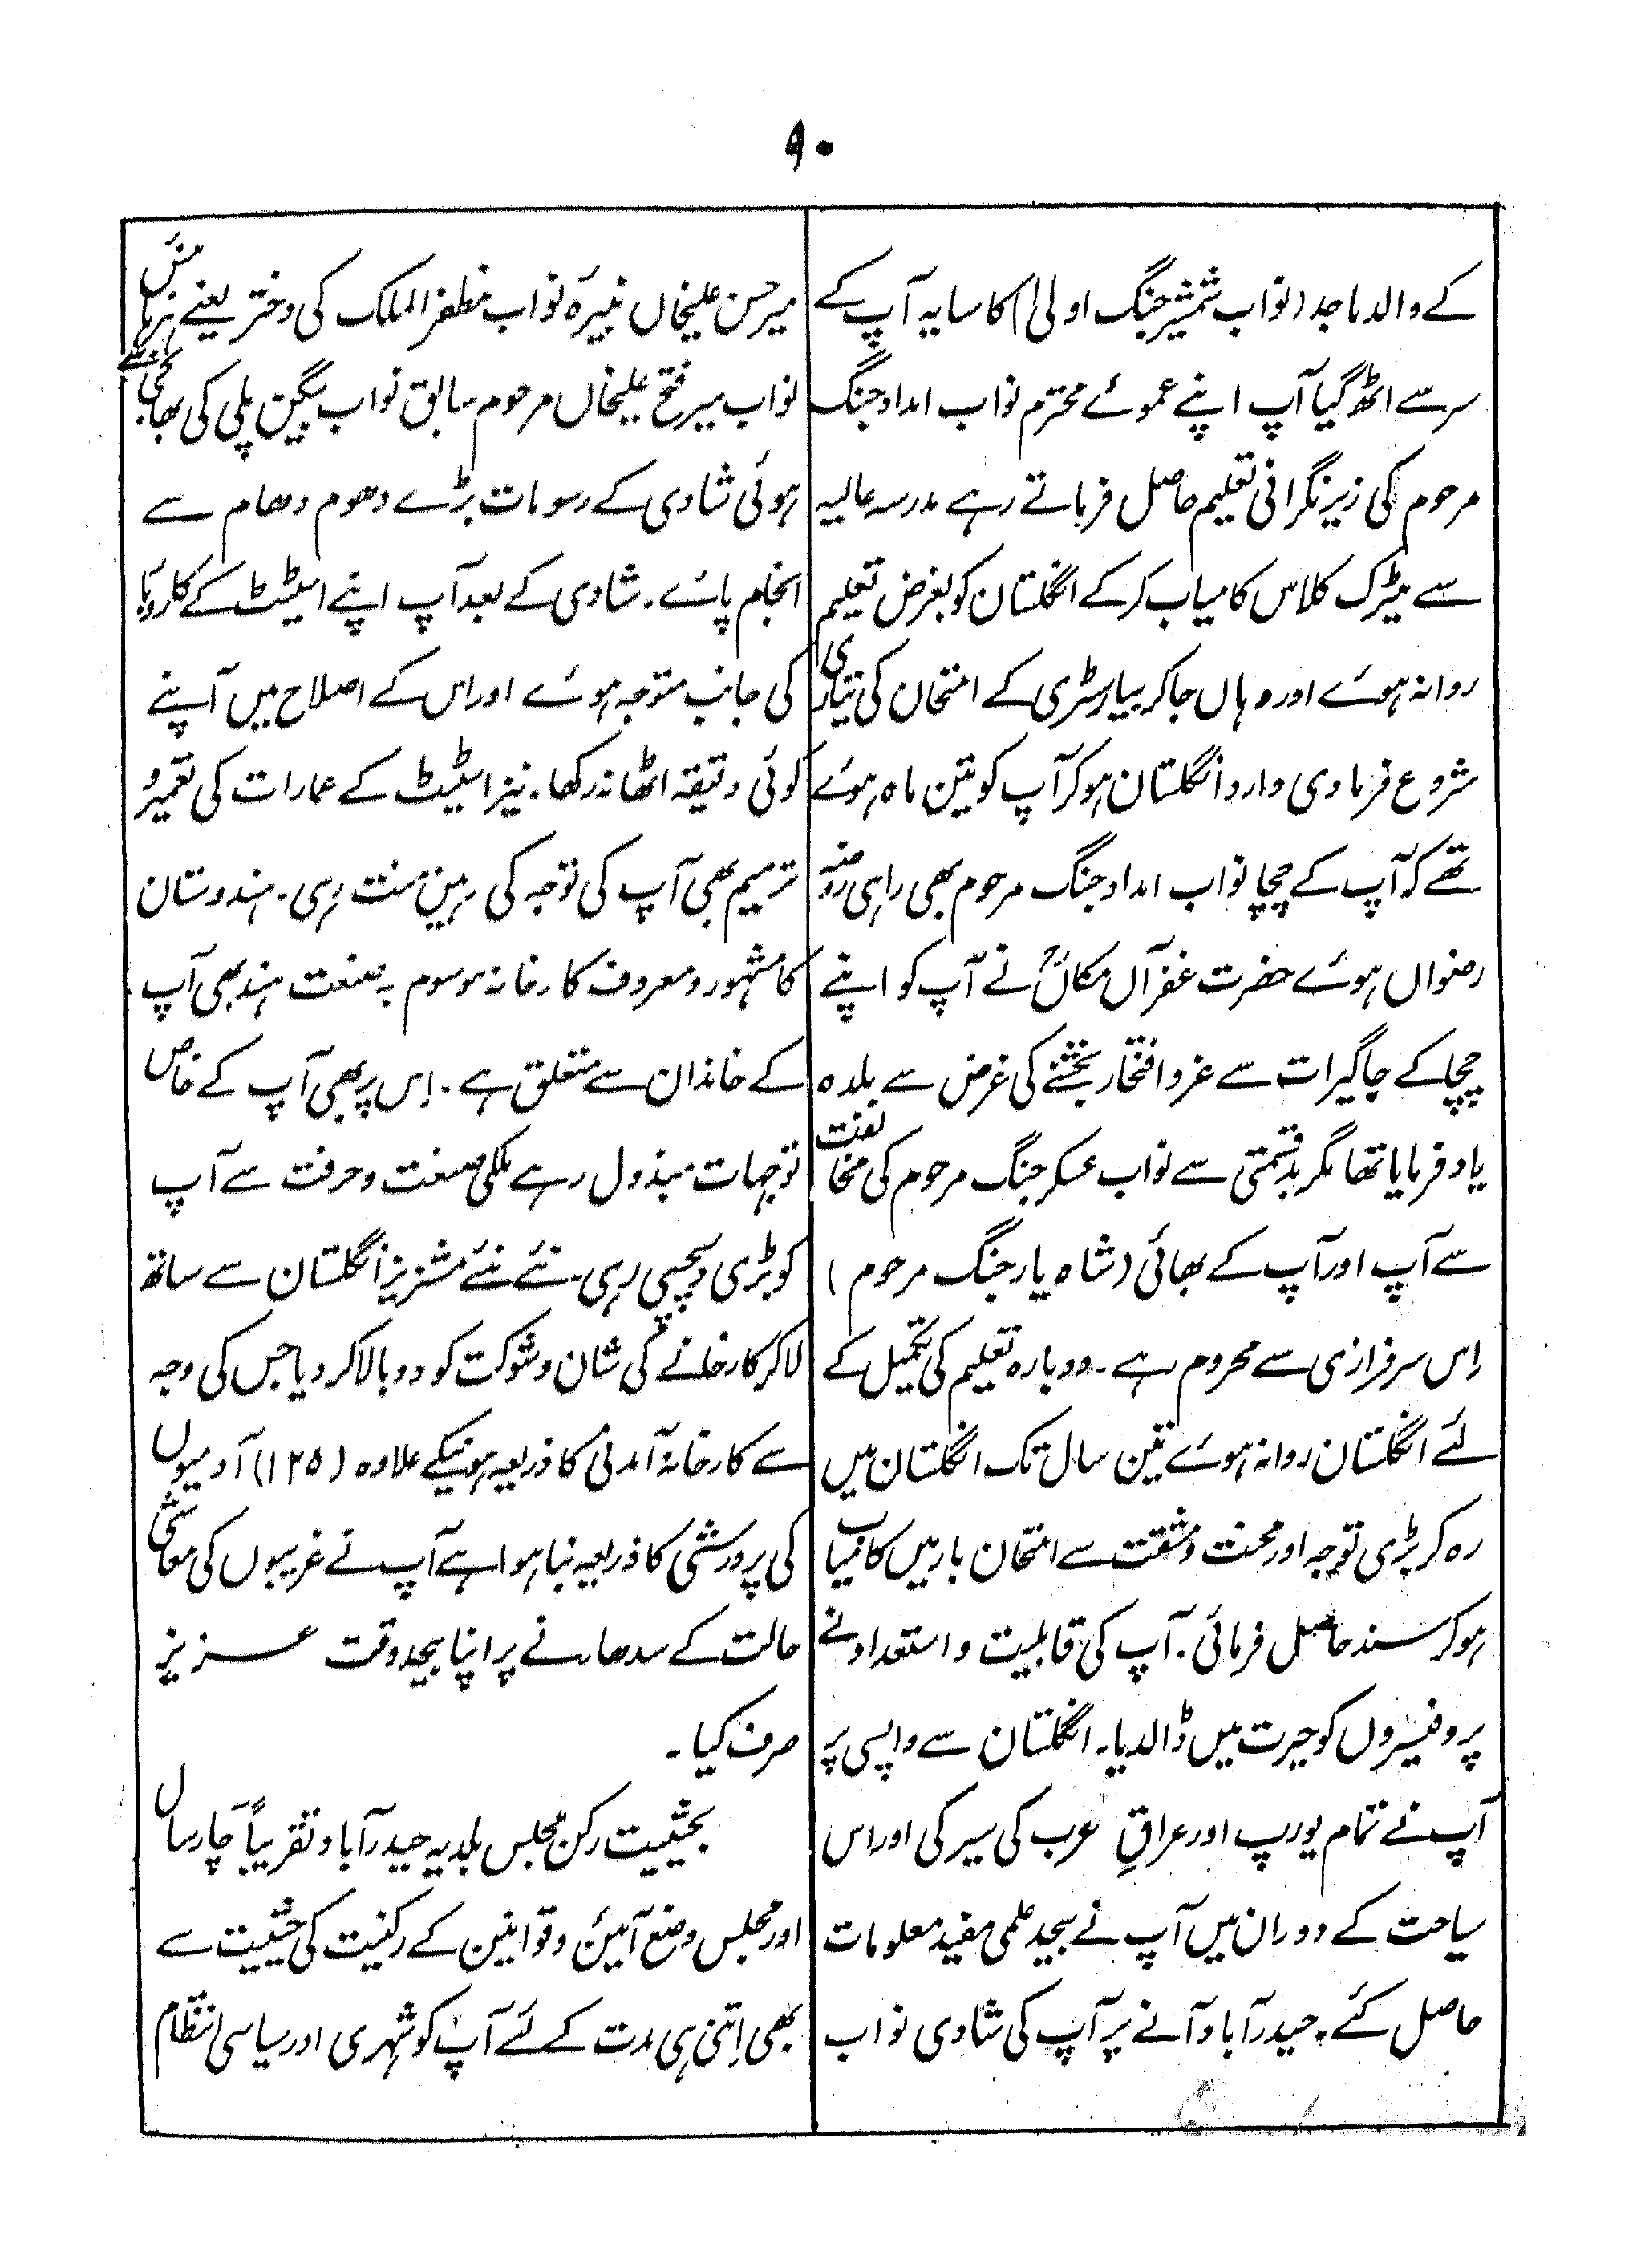 ۹۰
کے والد ماجد (نواب شمشیر جنگ اولیٰ) کا سایہ آپ کے
سر سے اٹھ گیا آپ اپنے عموئے محترم نواب امداد جنگ
مرحوم کی زیر نگرانی تعلیم حاصل فرماتے رہے مدرسہ عالیہ
سے میٹرک کلاس کامیاب کرکے انگلستان کو بغرض تعلیم
روانہ ہوئے اور وہاں جاکر بیارسٹری کے امتحان کی تیاری
شروع فرمادی وارد انگلستان ہوکر آپ کو تین ماہ ہوئے
تھے کہ آپ کے چچا نواب امداد جنگ مرحوم بھی راہی روضہ
رضواں ہوئے حضرت غفرآں مکاںؒ نے آپ کو اپنے
چچا کے جاگیرات سے عز و افتخار بخشنے کی غرض سے بلدہ
یاد فرمایا تھا مگر بدقسمتی سے نواب عسکر جنگ مرحوم کی مخالفت
سے آپ اور آپ کے بھائی (شاہ یار جنگ مرحوم)
اِس سرفرازی سے محروم رہے۔ دوبارہ تعلیم کی تکمیل کے
لئے انگلستان روانہ ہوئے تین سال تک انگلستان میں
رہ کر بڑی توجہ اور محنت و مشقت سے امتحان بار میں کامیاب
ہوکر سند حاصل فرمائی۔ آپ کی قابلیت و استعداد نے
پروفیسروں کو حیرت میں ڈالدیا۔ انگلستان سے واپسی پر
آپ نے تمام یورپ اور عراقِ عرب کی سیر کی اور اس
سیاحت کے دوران میں آپ نے بیحد علمی مفید معلومات
حاصل کئے۔ حیدرآباد آنے پر آپ کی شادی نواب
میر حسن علیخاں نبیرۂ نواب مظفر الملک کی دختر یعنے ہزہائنس
نواب میر فتح علیخاں مرحوم سابق نواب بیگن پلی کی بھانجی سے
ہوئی شادی کے رسومات بڑے دھوم دھام سے
انجام پائے۔ شادی کے بعد آپ اپنے اسٹیٹ کے کاروبار
کی جانب متوجہ ہوئے اور اس کے اصلاح میں آپنے
کوئی دقیقہ اٹھا نہ رکھا۔ نیز اسٹیٹ کے عمارات کی تعمیر و
ترمیم بھی آپ کی توجہ کی رہین منت رہی۔ ہندوستان
کا مشہور و معروف کارخانہ موسوم بہ صنعت ہند بھی آپ
کے خاندان سے متعلق ہے۔ اِس پر بھی آپ کے خاص
توجہات مبذول رہے ملکی صنعت و حرفت سے آپ
کو بڑی دلچسپی رہی۔ نئے نئے مشنریز انگلستان سے ساتھ
لاکر کارخانے کی شان و شوکت کو دوبالا کردیا جس کی وجہ
سے کارخانہ آمدنی کا ذریعہ ہونیکے علاوہ (۱۲۵) آدمیوں
کی پرورشی کا ذریعہ بنا ہوا ہے آپ نے غریبوں کی معاشی
حالت کے سدھارنے پر اپنا بیحد وقت عزیز
صرف کیا۔
بحیثیت رکن مجلس بلدیہ حیدرآباد تقریباً چار سال
اور مجلس وضع آئین و قوانین کے رکنیت کی حیثیت سے
بھی اِتنی ہی مدت کے لئے آپ کو شہری اور سیاسی انتظام